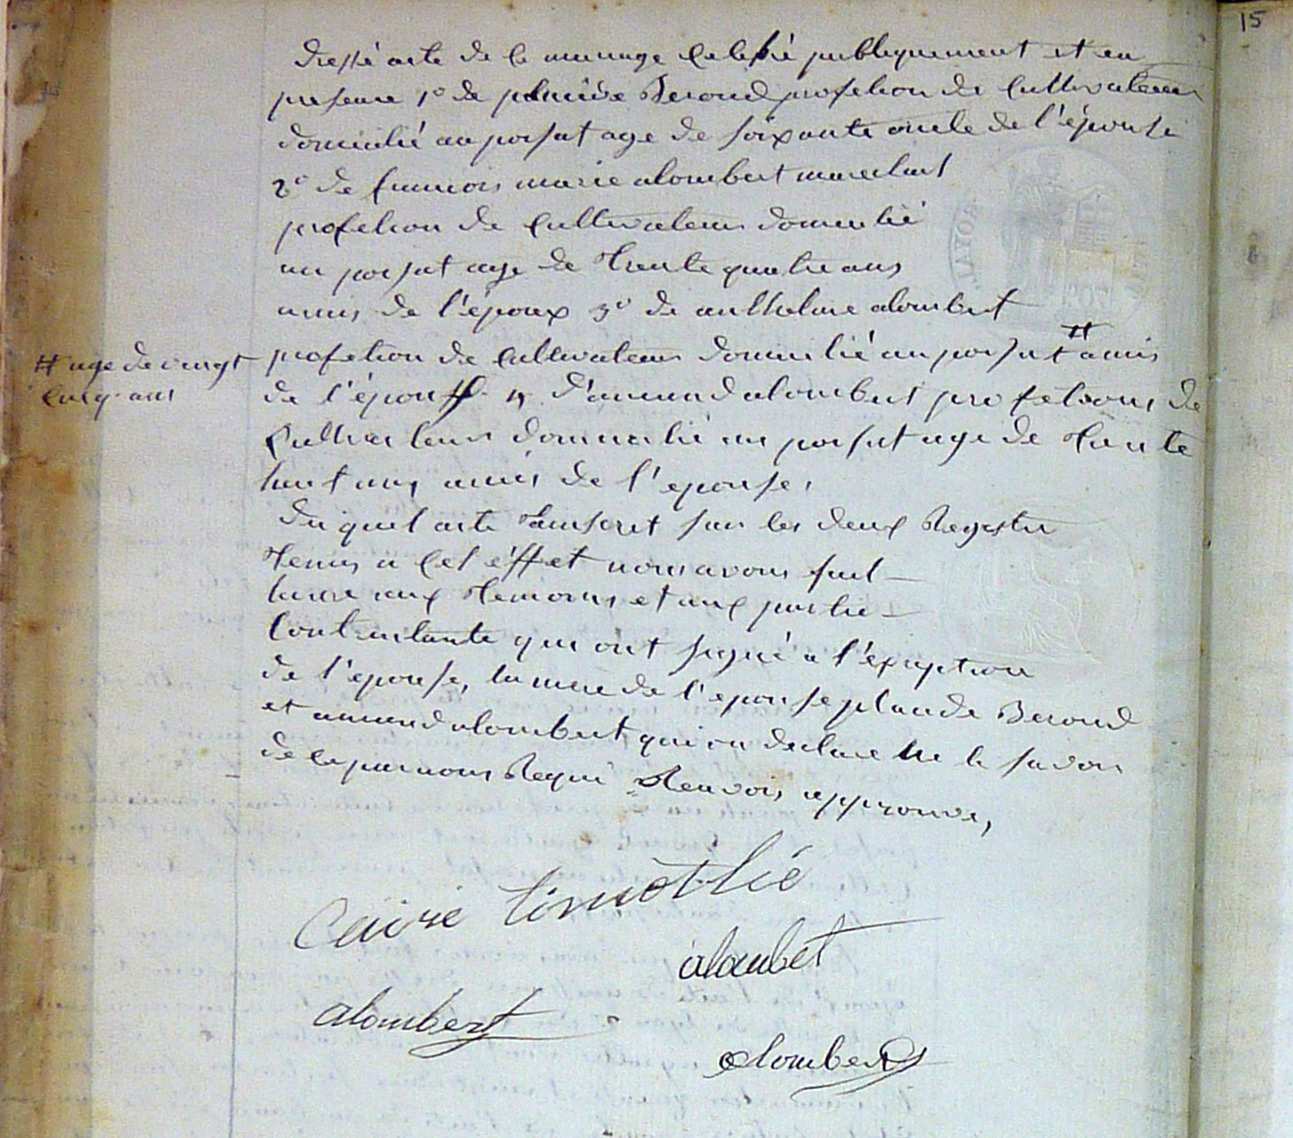 15
dressé acte de ce mariage celebré publiquement et en
presence 1° de placide Beroud profetion de Cultivateur
domicilié au porsat age de soixante oncle de l'épouse
2° de francois marie alombert marechal
profetion de Cultivateur domicilié
au porsat age de Trente quatre ans
amis de l'époux 3° de anthelme alombert
profetion de Cultivateur domicilié au porsat # amis
# age de vingt
cinq ans
de l'épouse 4 d'armand alombert profetions de
Cultivateur domicilié au porsat age de Trente
huit ans amis de l'epouse,
du quel acte Transcrit sur les deux Registre
Tenus a Cet éffet nous avons fait
lecture aux Temoins et aux partie
Contractante qui ont signé a l'éxeption
de l'epouse, la mere de l'epouse placide Beroud
et armand alombert qui on declare ne le savoir
de ce par nous Requi Renvois approuve,
Timothée
alombet
alombert
alombert